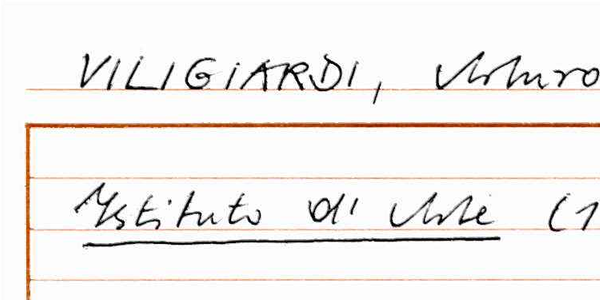 VILIGIARDI, Arturo
Istituto di Arte (1